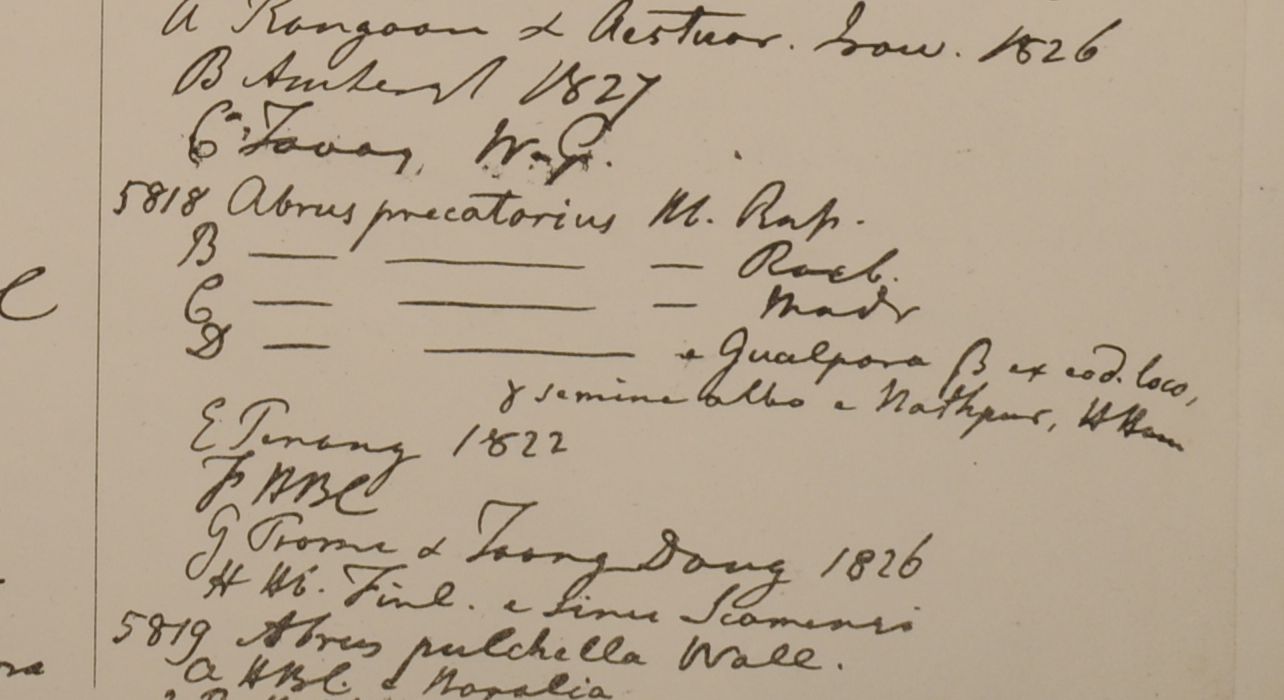 a Rangoon & Aestuar. Iraw. 1826
B Amherst 1827
C Tavoy, W.G.
5818 Abrus precatorius H.
B — — — Roxb.
C — — — Madr
D — — e Gualpara β ex eod. loco,
γ semine albo e Nathpur, HHam
E Penang 1822
F HBC
G Prome & Toong Dong 1826
H Hb. Finl. e sinu Siamensi
5819 Abrus pulchella Wall.
a HBC. e